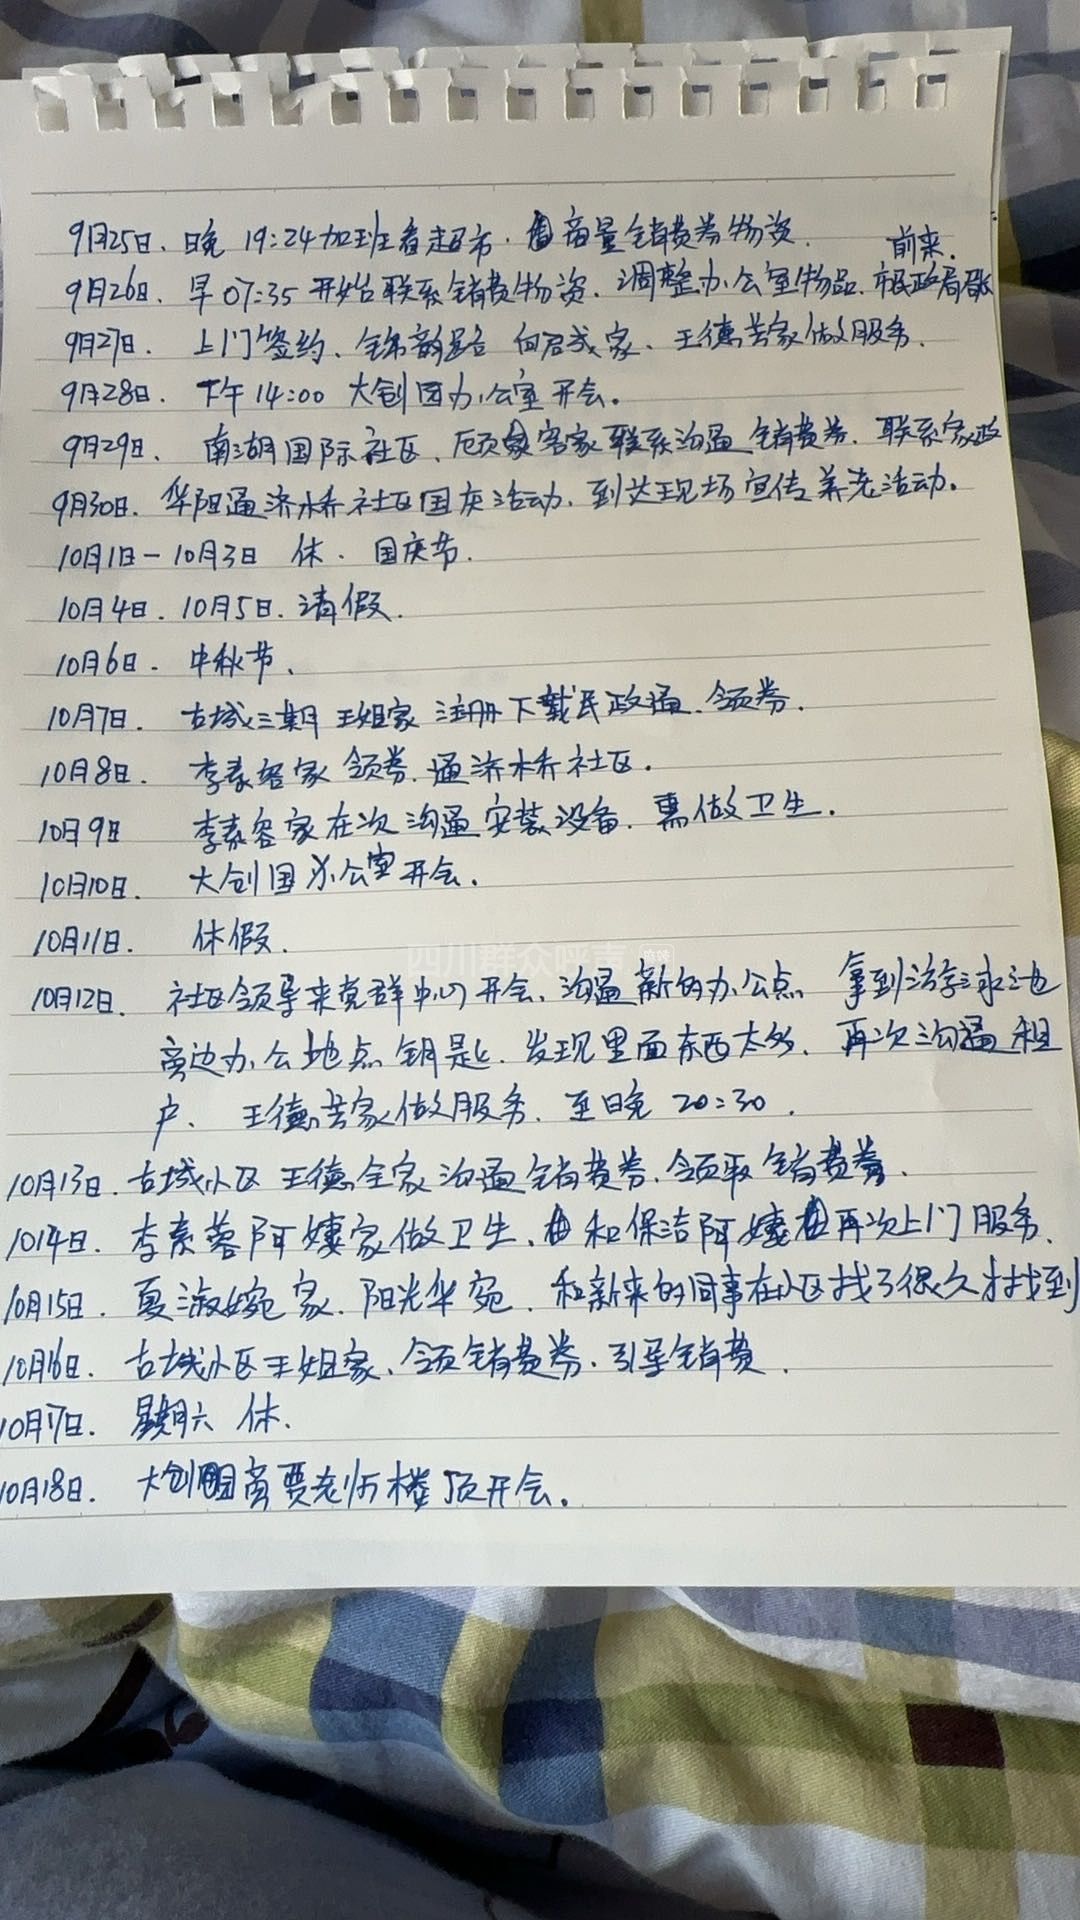 9月25日. 晚 19:24加班看超市. 商量销费券物资.
前来.
9月26日. 早07:35开始联系销费物资. 调整办公室物品. 市民政局
9月27日. 上门签约、锦韵路 何君成家、王德芸家做服务.
9月28日. 下午14:00 大创园办公室开会。
9月29日. 南湖国际社区、顾客家联系沟通销费券. 联系家政
9月30日. 华阳通济桥社区国庆活动. 到达现场宣传养老活动。
10月1日-10月3日 休. 国庆节.
10月4日. 10月5日. 请假.
10月6日. 中秋节、
10月7日. 古城三期王姐家 注册下载民政通、领券.
10月8日. 李素容家 领券. 通济桥社区.
10月9日 李素容家在次沟通安装设备. 做卫生.
10月10日. 大创园办公室开会.
10月11日. 休假.
四川群众呼声
10月12日. 社区领导来党群中心开会、沟通新的办公点 拿到游泳池
旁边办公地点钥匙. 发现里面东西太多. 再次沟通租
户、 王德芸家做服务. 至晚20:30.
10月13日. 古城小区 王德全家沟通销费券. 领取销费券.
1014日. 李素蓉阿姨家做卫生、和保洁阿姨再次上门服务.
10月15日. 夏淑婉家. 阳光华苑. 和新来的同事在小区找了很久才找到
10月16日. 古城小区王姐家、领销费券. 引导销费.
10月17日. 星期六 休.
10月18日. 大创园 贾老师楼顶开会。